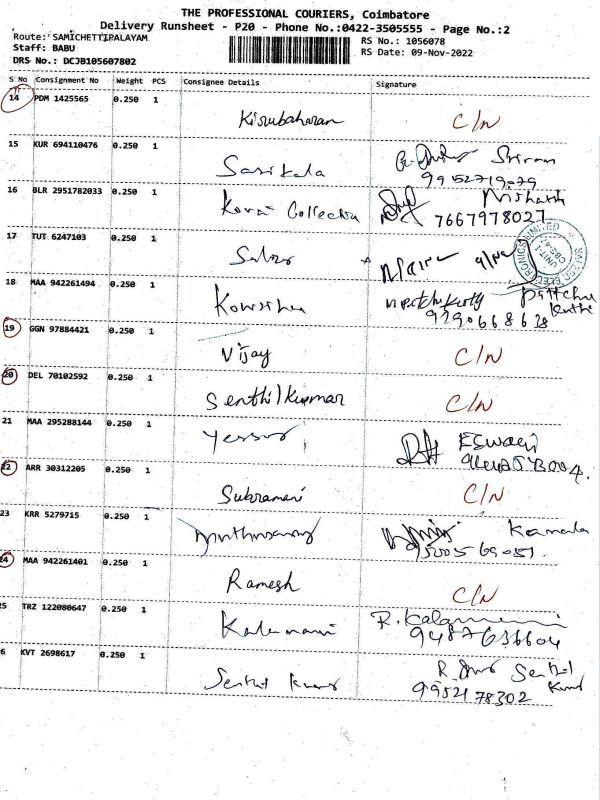 THE PROFESSIONAL COURIERS, Coimbatore
Delivery Runsheet - P20 - Phone No.:0422-3505555 - Page No.:2
Route: SAMICHETTIPALAYAM
Staff: BABU
DRS No.: DCJB105607802
RS No.: 1056078
RS Date: 09-Nov-2022
S No Consignment No Weight PCS Consignee Details Signature
14 PDM 1425565 0.250 1
Kirubaharan C/N
15 KUR 694110476 0.250 1
Sasikala Sriram
16 BLR 2951782033 0.250 1
Kovai Collection Nishanth
7667978027
17 TUT 6247103 0.250 1
18 MAA 942261494 0.250 1
Kowsalya
9290668638
19 GGN 97884421 0.250 1
Vijay C/N
20 DEL 70102592 0.250 1
Senthilkumar C/N
21 MAA 295288144 0.250 1
Eswari
22 ARR 30312205 0.250 1
Subramani C/N
23 KRR 5279715 0.250 1
Kamala
24 MAA 942261401 0.250 1
Ramesh C/N
25 TRZ 122080647 0.250 1
Kalamani R. Kalamani
9487636604
26 KVT 2698617 0.250 1
Senthil Kumar Senthil Kumar
9952178302